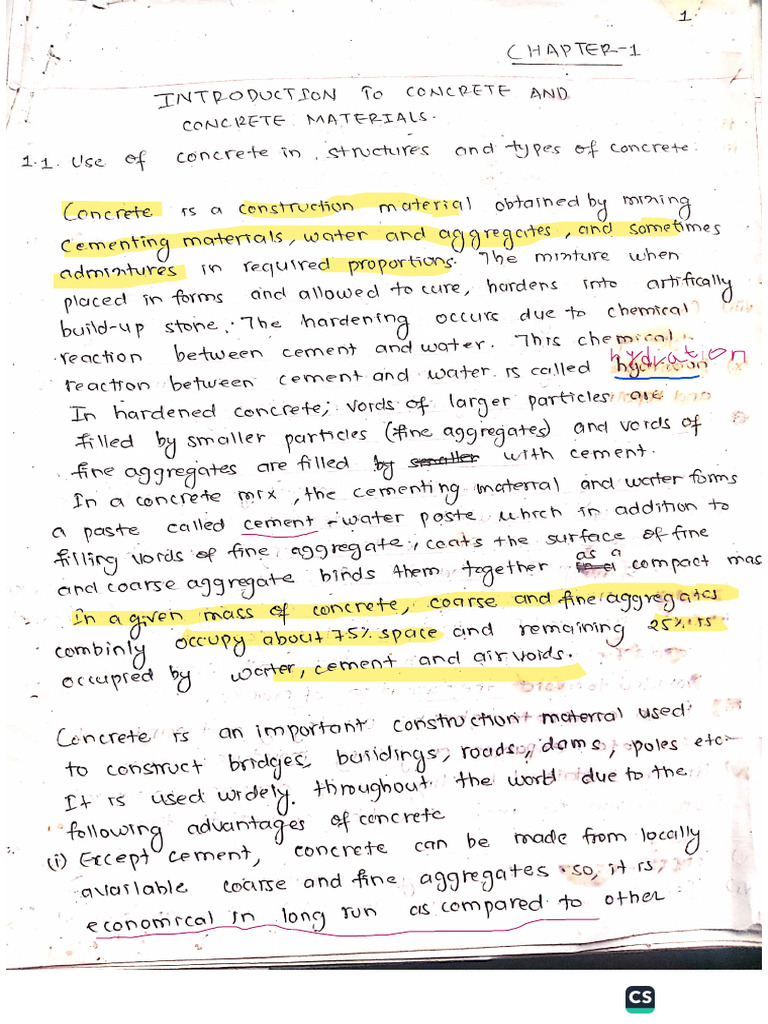 1
CHAPTER-1
INTRODUCTION TO CONCRETE AND
CONCRETE MATERIALS.
1.1. Use of concrete in structures and types of concrete.
Concrete is a construction material obtained by mixing
cementing materials, water and aggregates, and sometimes
admixtures in required proportions. The mixture when
placed in forms and allowed to cure, hardens into artifically
build-up stone. The hardening occurs due to chemical
reaction between cement and water. This chemical
hydration
reaction between cement and water is called hydration
In hardened concrete, voids of larger particles are
filled by smaller particles (fine aggregates) and voids of
fine aggregates are filled by smaller with cement.
In a concrete mix, the cementing material and water forms
a paste called cement-water paste which in addition to
filling voids of fine aggregate, coats the surface of fine
as a
and coarse aggregate binds them together compact mas
In a given mass of concrete, coarse and fine aggregates
combinly occupy about 75% space and remaining 25% is
occupied by water, cement and air voids.
Concrete is an important construction material used
to construct bridges, buildings, roads, dams, poles etc-
It is used widely. throughout the world due to the
following advantages of concrete
(i) Except cement, concrete can be made from locally
available coarse and fine aggregates so, it is
economical in long run as compared to other
CS